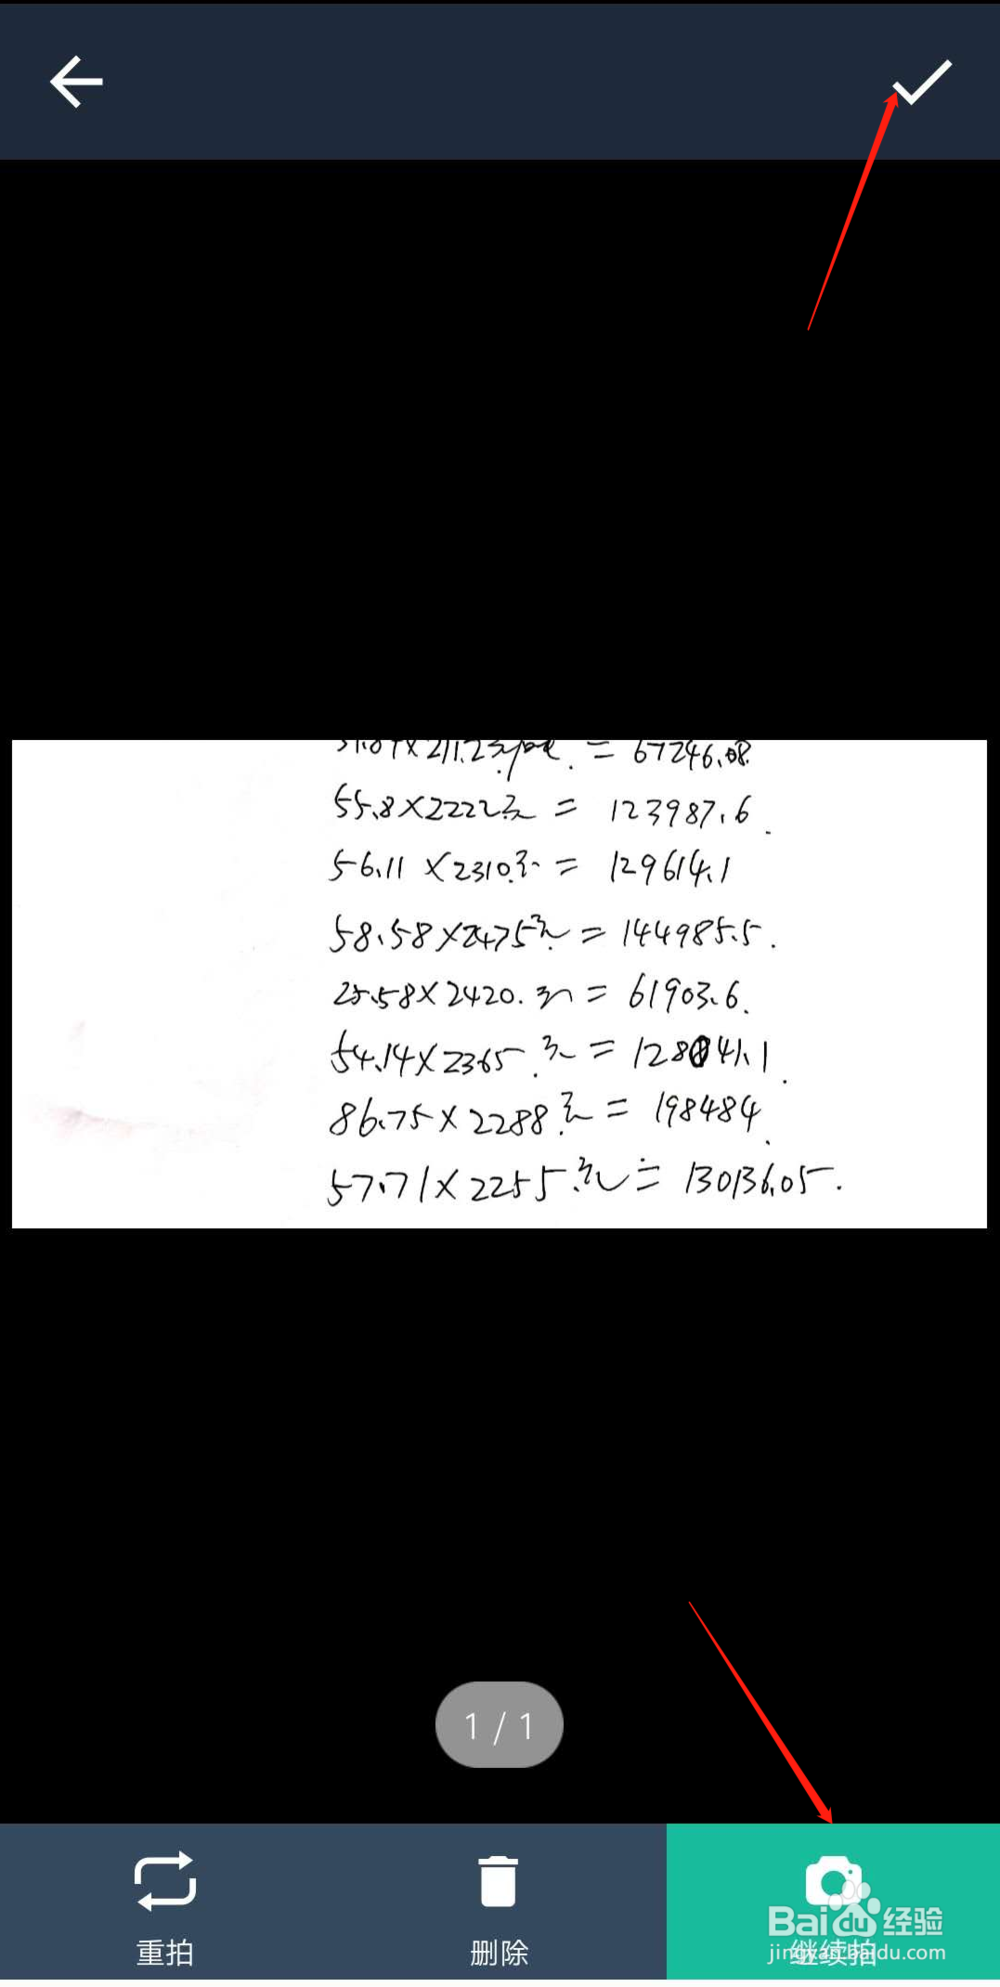 = 67246.08
55.8×2222元 = 123987.6.
56.11×2310元 = 129614.1
58.58×2475元 = 144985.5.
25.58×2420.元 = 61903.6.
54.14×2365.元 = 128041.1.
86.75×2288元 = 198484.
57.71×2255元 = 130136.05.
1 / 1
重拍
删除
继续拍
Baidu 经验
jingyan.baidu.com